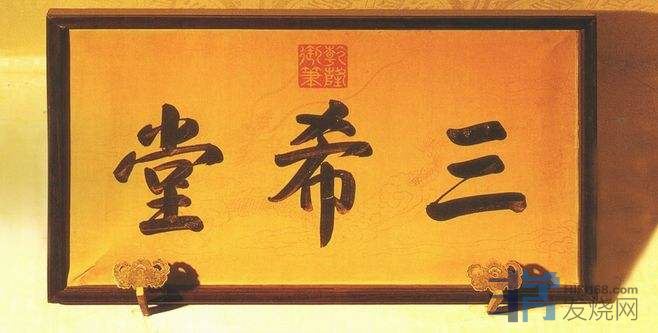 三希堂
乾隆御筆
HIFI168.com
发烧网